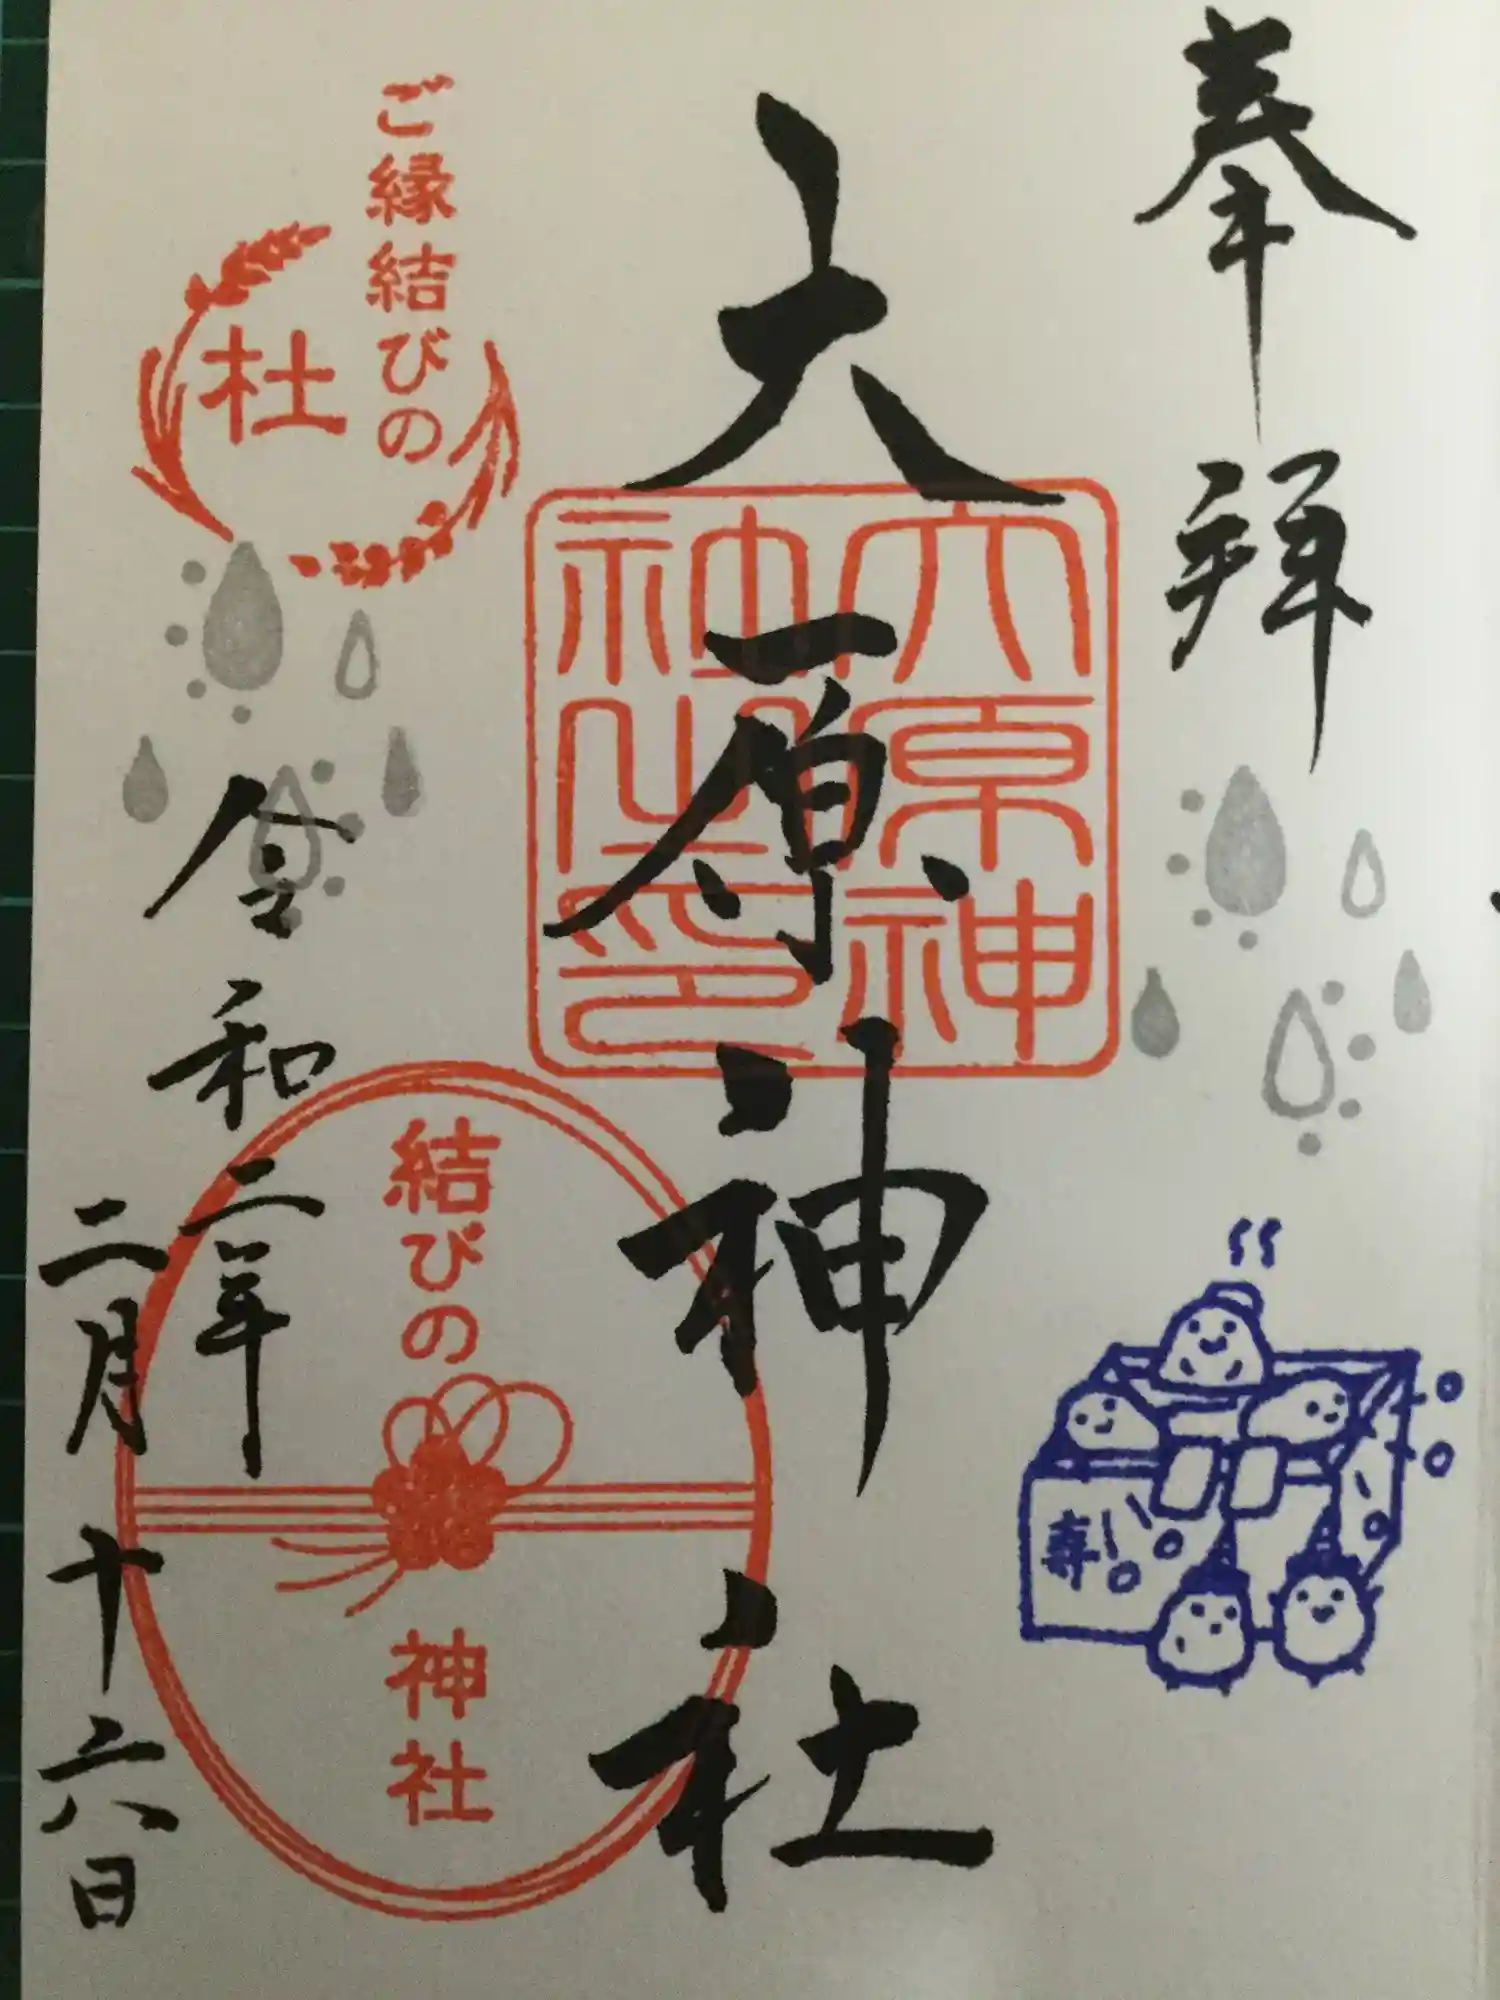 奉拝
大原神社
大原神
社之印
ご縁結びの
杜
結びの
神社
寿
令和二年
二月十六日